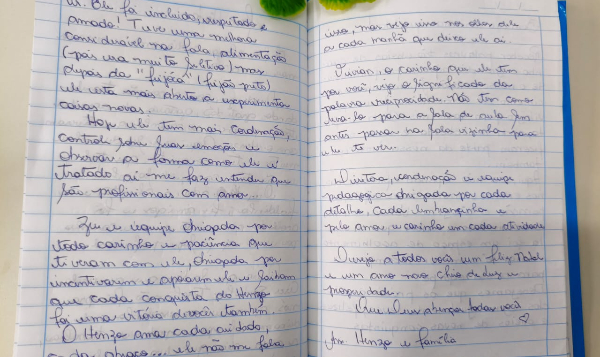 ui. Ele foi incluído, respeitado e
amado! Teve uma melhora
considerável na fala, alimentação
(pois era muito seletivo) mas
depois da "feijão" (feijão preto)
ele está mais aberto a experimentar
coisas novas.
Hoje ele tem mais coordenação,
controle sobre suas emoções e
observar a forma como ele é
tratado aí me faz entender que
são profissionais com amor.
e equipe obrigada por
todo carinho e paciência que
tiveram com ele, obrigada por
incentivarem e apoiarem ele e saibam
que cada conquista do Henzo
foi uma vitória de vocês também.
O Henzo ama cada cuidado,
abraço... ele não me fala
isso, mas vejo isso nos olhos dele
a cada manhã que deixo ele aí.
o carinho que ele tem
por você, vejo o significado da
palavra reciprocidade. Não tem como
levá-lo para a sala de aula sem
antes passar na sala vizinha para
ele te ver.
Diretora, coordenação e equipe
pedagógica obrigada por cada
detalhe. Cada lembrancinha e
pelo amor e carinho em cada atividade
Desejo a todos vocês um feliz Natal
e um ano novo cheio de luz e
prosperidade.
Que Deus abençoe todos vocês
Ass Henzo e família